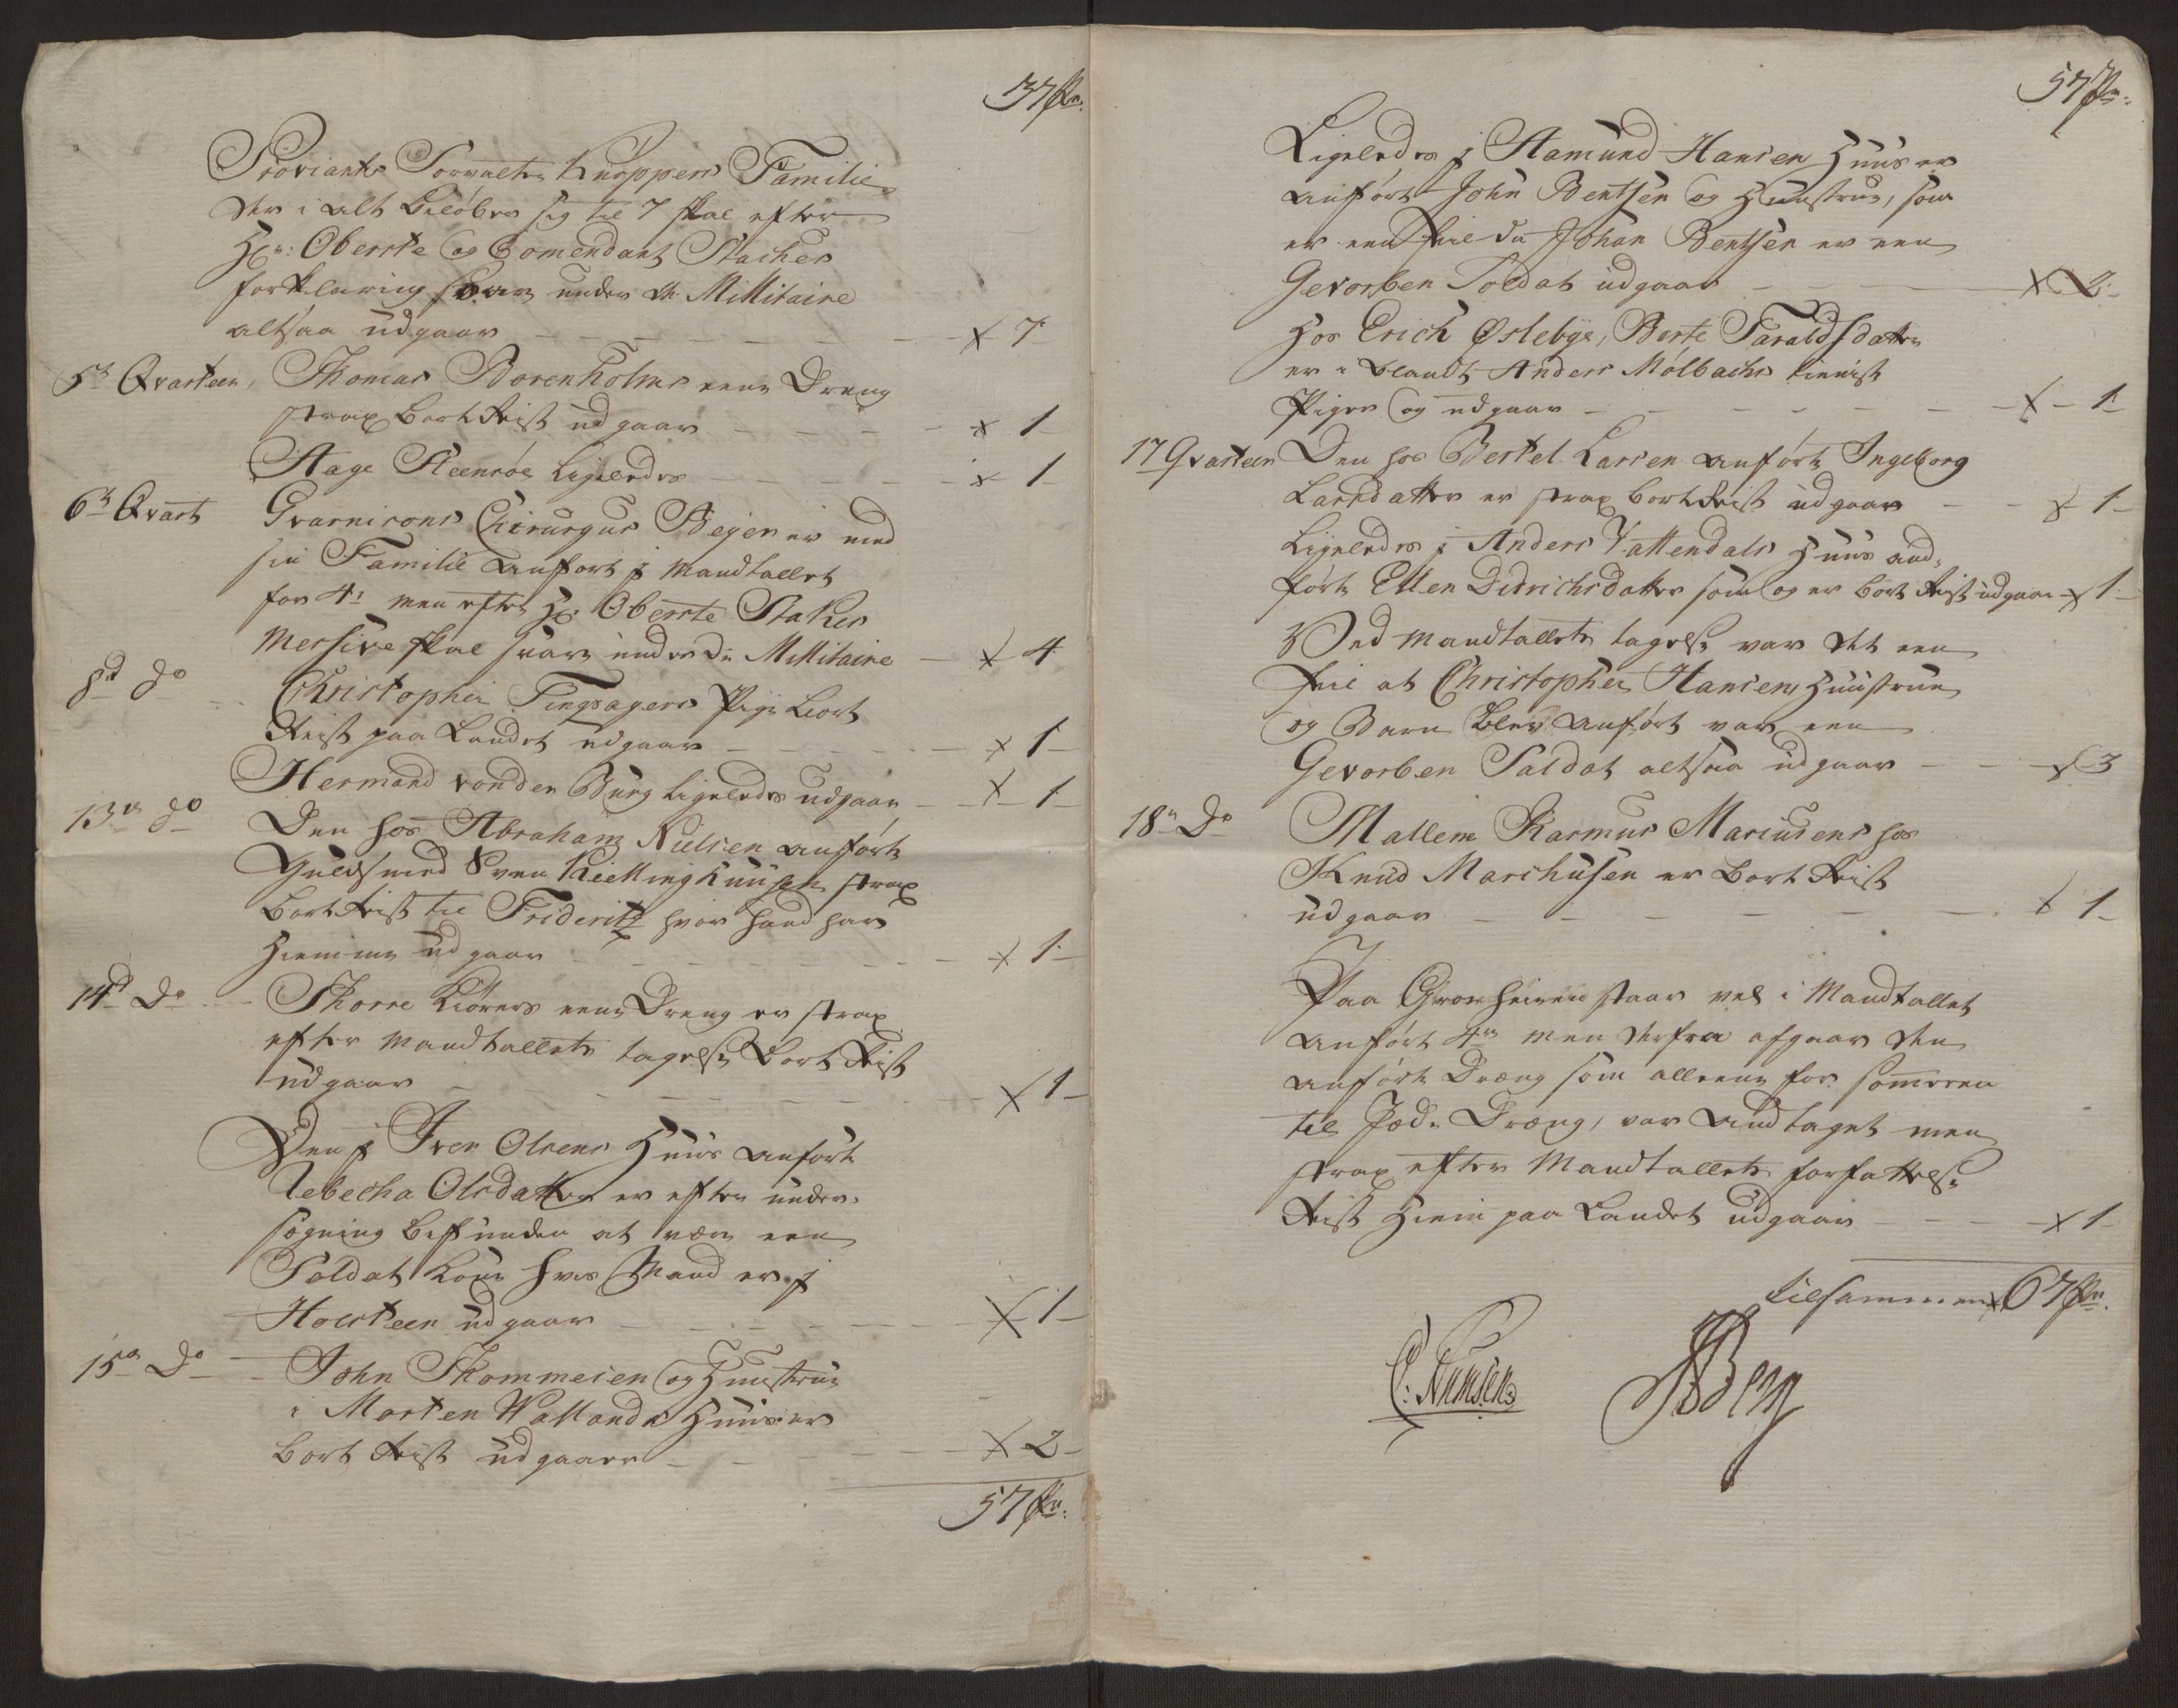 37 Pn:
Proviants Forvalter Knoppers Familie
der i alt beløber sig til 7 skal efter
Hr: Oberste og Comendant Staches
forklaring svare under de Millitaire
altsaa udgaar x 7
5te Qvarteer, Thomas Borenholms eene Dreng
strax bort Reist udgaar x 1
Aage Steenrøe ligeledes x 1
6te Qvart Gvarnisons Chirurgus Bejer er med
sin Familie anført j mandtallet
for 4: men efter Hr: Oberste Stakes
Messive skal svare under de Millitaire x 4
8d do Christopher Tingsagers Pige bort
Reist paa Landet udgaar x 1
Hermand von der Burg ligeledes udgaar x 1
13de do Den hos Abraham Nielsen anførte
Guldsmed Sven strax
bort Reist til Frideritz hvor hand har
hiemme udgaar x 1
14d Do Thorre Kiørers eene Dreng er strax
efter mandtallets tagelse bort Reist
udgaar x 1
Den j Iver Olsens Huus anførte
Rebecha Olsdatter er efter under-
søgning befunden at være een
Soldat kone hvis Mand er j
Holsteen udgaar x 1
15de Do John Thommesen og Huustrue
i Morten Wallands Huus er
bort Reist udgaar x 2
57 Pn:
57 Pn:
Ligeledes j Aamund Hansens Huus er
anført John Bentsen og Huustrue, som
er een feil da Johan Bentsen er een
Gevorben Soldat udgaar x 2
Hos Erich Øslebye, Berte Taraldsdatter
er i blandt Anders Mølbachs tieniste
Piger og udgaar x 1
17 Qvarteer Den hos Bertel Larsen anførte Ingeborg
Larsdatter er strax bort Reist udgaar x 1
Ligeledes j Anders Vattendals Huus and-
førte Ellen Didrichsdatter som og er bort Reist udgaar x 1
Ved mandtallets tagelse var det een
feil at Christopher Hansens Huustrue
og Barn blev anført var een
Gevorben Saldat altsaa udgaar x 3
18de Do Mallene Rasmus Mariusens hos
Knud Marchusen er bort Reist
udgaar x 1
Paa staar vel i Mandtallet
anført 4re men derfra afgaar den
anførte Dreng som alleene for sommeren
til Dreng, var andtaget men
strax efter Mandtallets forfattelse
Reist hiem paa Landet udgaar x 1
tilsammen x 67 Pn: